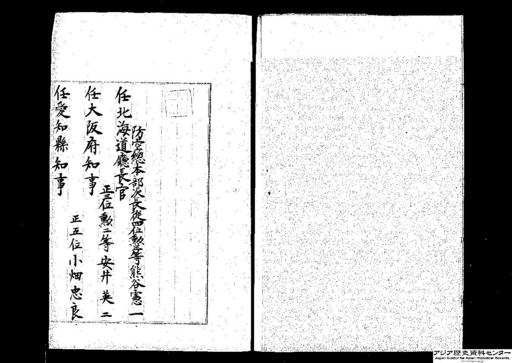 防空總本部次長從四位勲二等熊谷憲一
任北海道廳長官
正三位勲二等安井英二
任大阪府知事
正五位小畑忠良
任愛知縣知事
アジア歴史資料センター
Japan Center for Asian Historical Records